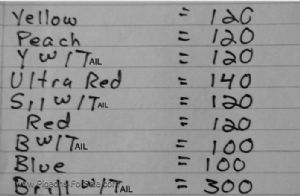 Yellow = 120
Peach = 120
Y W/TAIL = 120
Ultra Red = 140
Sil W/TAIL = 120
Red = 120
B W/TAIL = 100
Blue = 100
Brill W/TAIL = 300